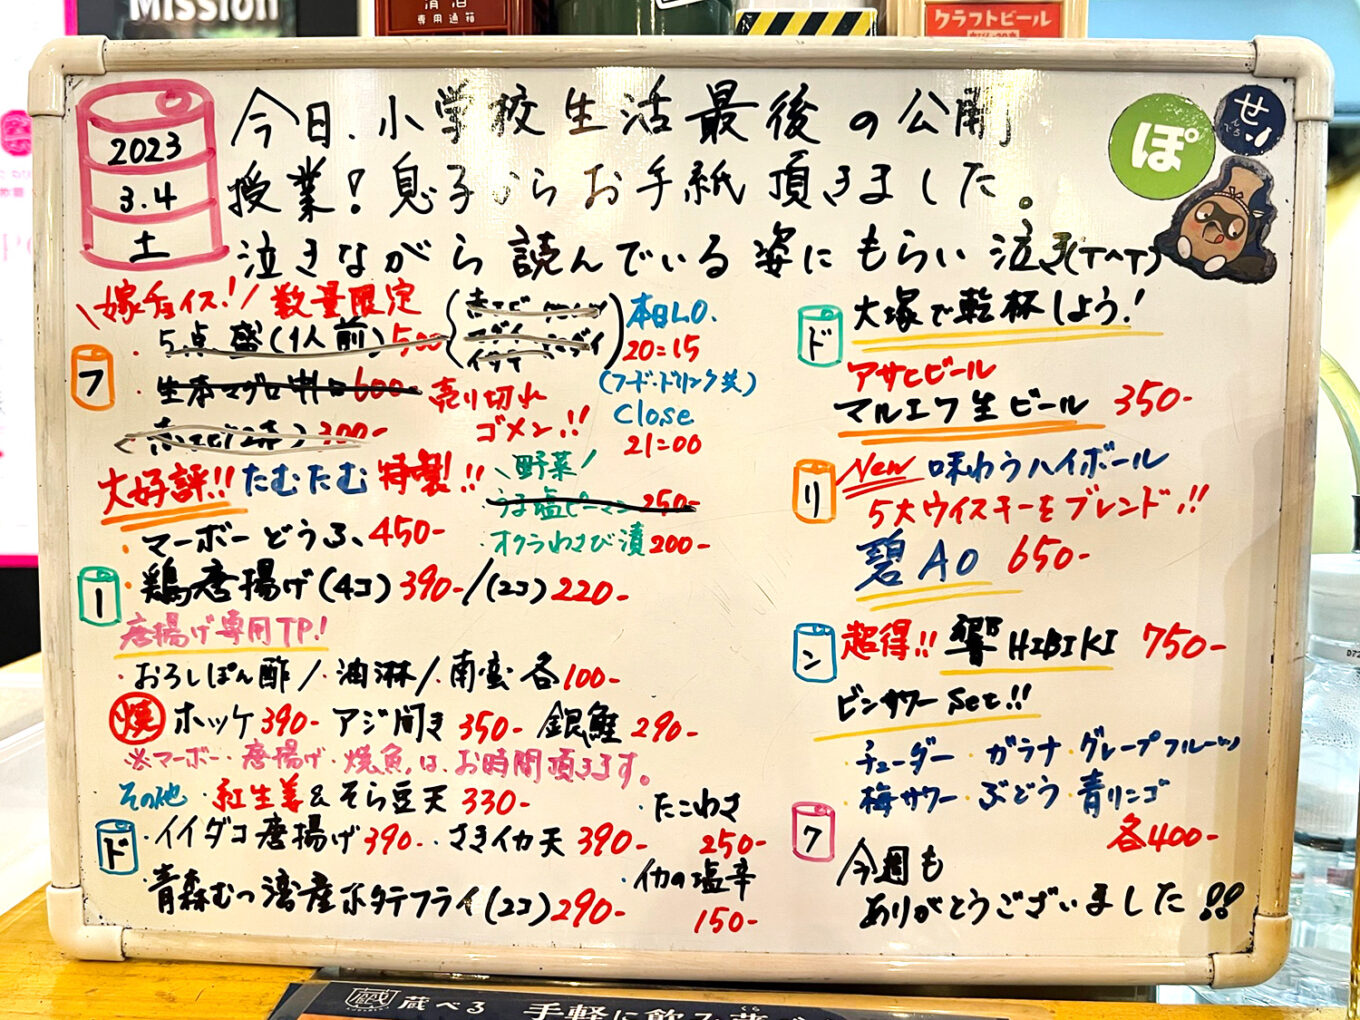 Mission
専用通箱
クラフトビール
2023
3.4
土
今日、小学校生活最後の公開
授業！息子からお手紙頂きました。
泣きながら読んでいる姿にもらい泣き(T^T)
ぽ
せ
\嫁チョイス！/ 数量限定
5点盛(1人前)500
生本マグロ中口600-
売り切れ
ゴメン!!
300-
本日L.O.
20=15
(フード・ドリンク共)
Close
21=00
フ
ー
ド
大好評!! たむたむ特製!!
・マーボーどうふ、450-
\野菜/
・うま塩ピーマン250-
・オクラわさび漬200-
・鶏唐揚げ(4コ)390-/(2コ)220-
唐揚げ専用TP!
・おろしぽん酢/・油淋/・南蛮 各100-
焼 ホッケ390- アジ開き350- 銀鮭290-
※マーボー・唐揚げ・焼魚は、お時間頂きます。
その他 ・紅生姜&そら豆天330-
・イイダコ唐揚げ390-・さきイカ天390-
・青森むつ湾産ホタテフライ(2コ)290-
・たこわさ
250-
・イカの塩辛
150-
ド
リ
ン
ク
大塚で乾杯しよう！
アサヒビール
マルエフ生ビール 350-
New 味わうハイボール
5大ウイスキーをブレンド!!
碧Ao 650-
超得!! 響HIBIKI 750-
ビンサワーSet!!
・チューダー・ガラナ・グレープフルーツ
・梅サワー・ぶどう・青リンゴ
各400-
今週も
ありがとうございました!!
蔵 蔵べる 手軽に飲み